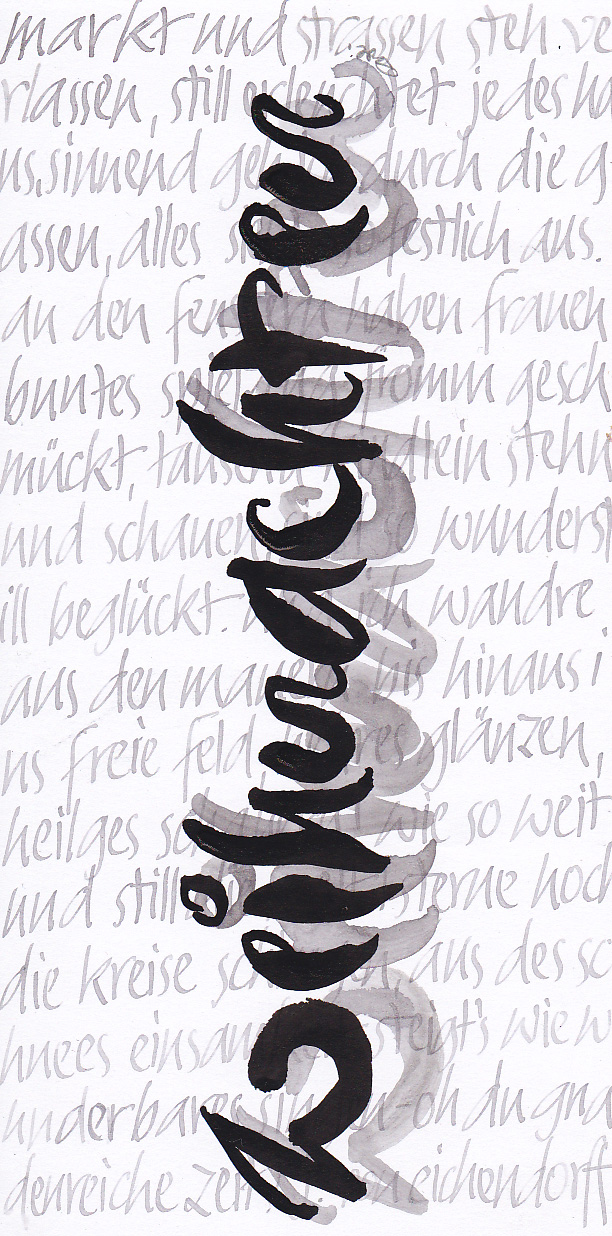 markt und strassen steh ve
rlassen, still erleuchtet jedes ha
us. sinnend geh durch die g
assen, alles so festlich aus.
an den fenstern haben frauen
buntes fromm gesch
mückt, tausend kindlein stehn
und schauen so wunderst
ill beglückt. und ich wandre
aus den mauern bis hinaus i
ns freie feld, hehres glänzen,
heilges wie so weit
und still sterne hoch
die kreise schlingen, aus des sc
hnees einsamkeit steigt's wie w
underbares singen-oh du gna
denreiche zeit eichendorff
weihnachten